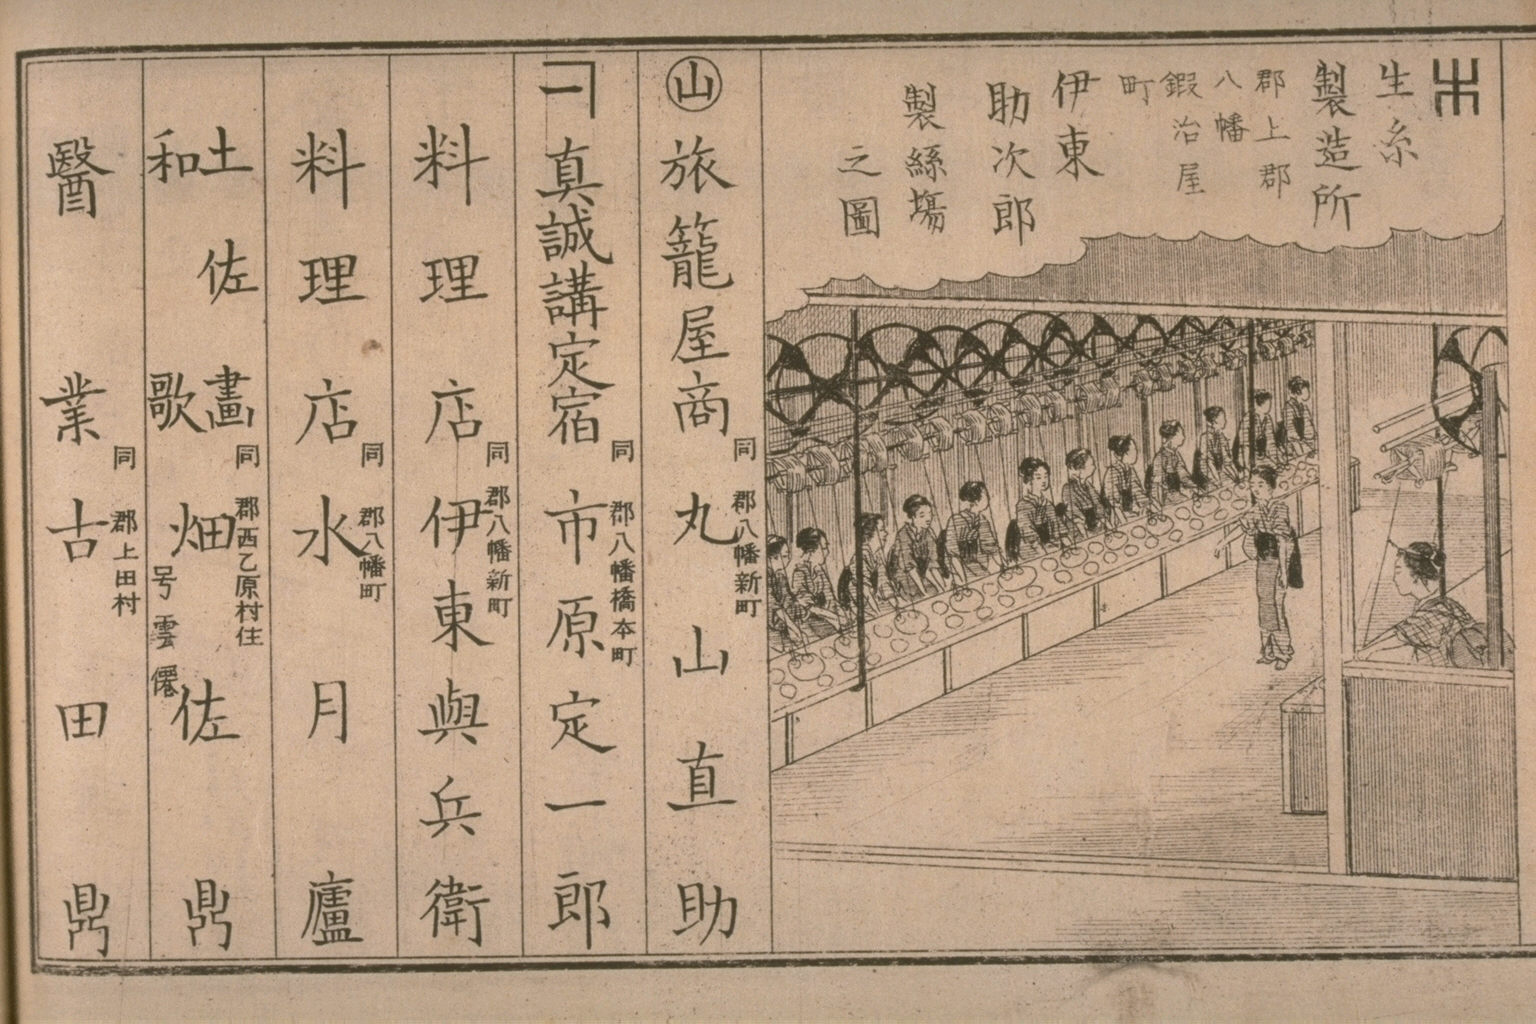 生糸
製造所
郡上郡
八幡
鍜治屋
町
伊東
助次郎
製絲塲
之圖
山
旅籠屋商 同郡八幡新町 丸山直助
真誠講定宿 同郡八幡橋本町 市原定一郎
料理店 同郡八幡新町 伊東與兵衛
料理店 同郡八幡町 水月廬
土佐畫
和歌 同郡西乙原村住 畑佐鼎 号雲僊
醫業 同郡上田村 古田鼎